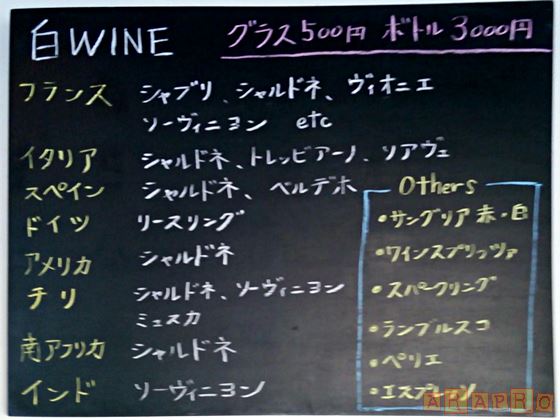 白WINE グラス500円 ボトル3000円
フランス シャブリ、シャルドネ、ヴィオニエ
ソーヴィニヨン etc
イタリア シャルドネ、トレッビアーノ、ソアヴェ
スペイン シャルドネ、ベルデホ
ドイツ リースリング
アメリカ シャルドネ
チリ シャルドネ、ソーヴィニヨン
ミュスカ
南アフリカ シャルドネ
インド ソーヴィニヨン
Others
•サングリア 赤・白
•ワインスプリッツァ
•スパークリング
•ランブルスコ
•ペリエ
ARAPRO